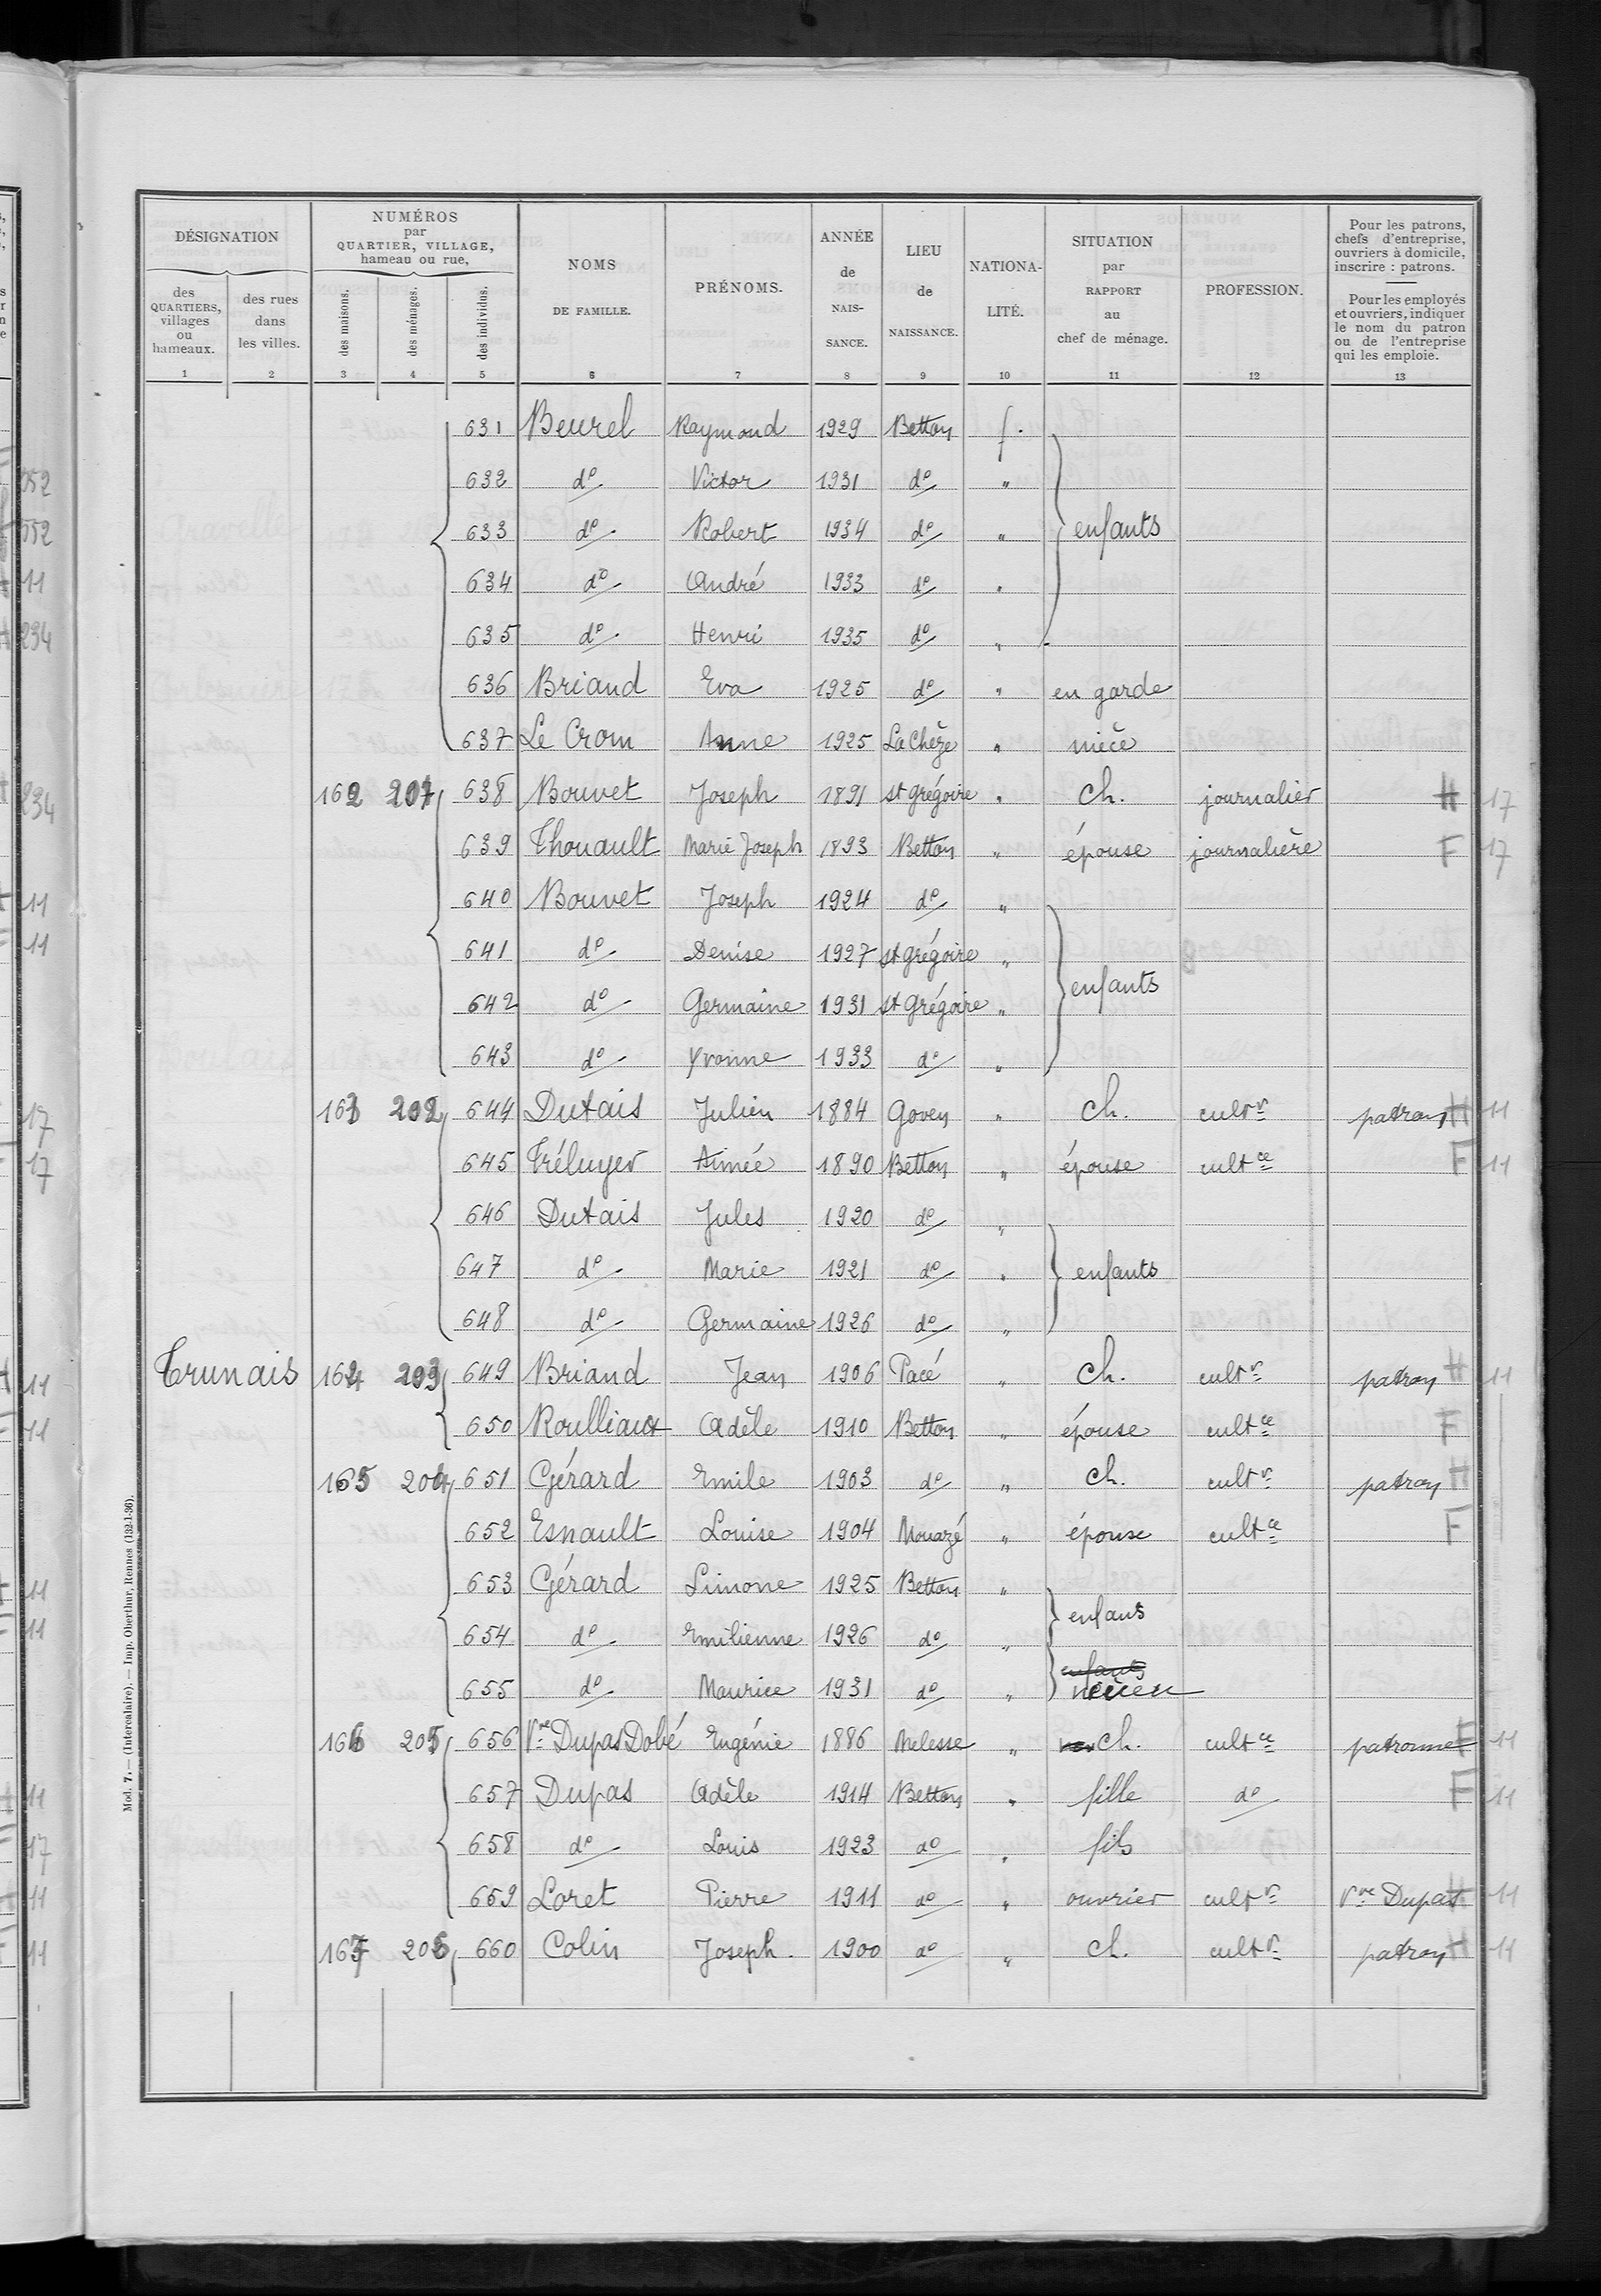 DÉSIGNATION
des QUARTIERS, villages ou hameaux.
des rues dans les villes.
NUMÉROS par QUARTIER, VILLAGE, hameau ou rue,
des maisons.
des ménages.
des individus.
NOMS DE FAMILLE.
PRÉNOMS.
ANNÉE de NAIS- SANCE.
LIEU de NAISSANCE.
NATIONA- LITÉ.
SITUATION par RAPPORT au chef de ménage.
PROFESSION.
Pour les patrons, chefs d'entreprise, ouvriers à domicile, inscrire : patrons.
Pour les employés et ouvriers, indiquer le nom du patron ou de l'entreprise qui les emploie.
1 2 3 4 5 6 7 8 9 10 11 12 13
631 Beurel Raymond 1929 Betton f.
632 do Victor 1931 do "
633 do Robert 1934 do " enfants
634 do André 1933 do "
635 do Henri 1935 do "
636 Briand Eva 1925 do " en garde
637 Le Crom Anne 1925 La Chèze " nièce
162 201 638 Bouvet Joseph 1891 st Grégoire " ch. journalier H 17
639 Thouault Marie Joseph 1893 Betton " épouse journalière F 17
640 Bouvet Joseph 1924 do "
641 do Denise 1927 st Grégoire "
642 do Germaine 1931 st Grégoire " enfants
643 do Yvonne 1933 do "
163 202 644 Dutais Julien 1884 Goven " ch. cultr patron H 11
645 Tréluyer Aimée 1890 Betton " épouse cultce F 11
646 Dutais Jules 1920 do "
647 do Marie 1921 do " enfants
648 do Germaine 1926 do "
Trunais 164 203 649 Briand Jean 1906 Pacé " ch. cultr patron H 11
650 Roulliaux Adèle 1910 Betton " épouse cultce F
165 204 651 Gérard Emile 1903 do " ch. cultr patron H
652 Esnault Louise 1904 Mouazé " épouse cultce F
653 Gérard Simone 1925 Betton "
enfans
654 do Emilienne 1926 do "
enfants
655 do Maurice 1931 do " neveu
166 205 656 Vve Dupas Dobé Eugénie 1886 Melesse " ch. cultce patronne F 11
657 Dupas Adèle 1914 Betton " fille do F 11
658 do Louis 1923 do " fils
659 Loret Pierre 1911 do " ouvrier cultr Vve Dupas H 11
167 206 660 Colin Joseph. 1900 do " ch. cultr patron H 11
Mod. 7. — (Intercalaire). — Imp. Oberthur, Rennes (132-1-36).